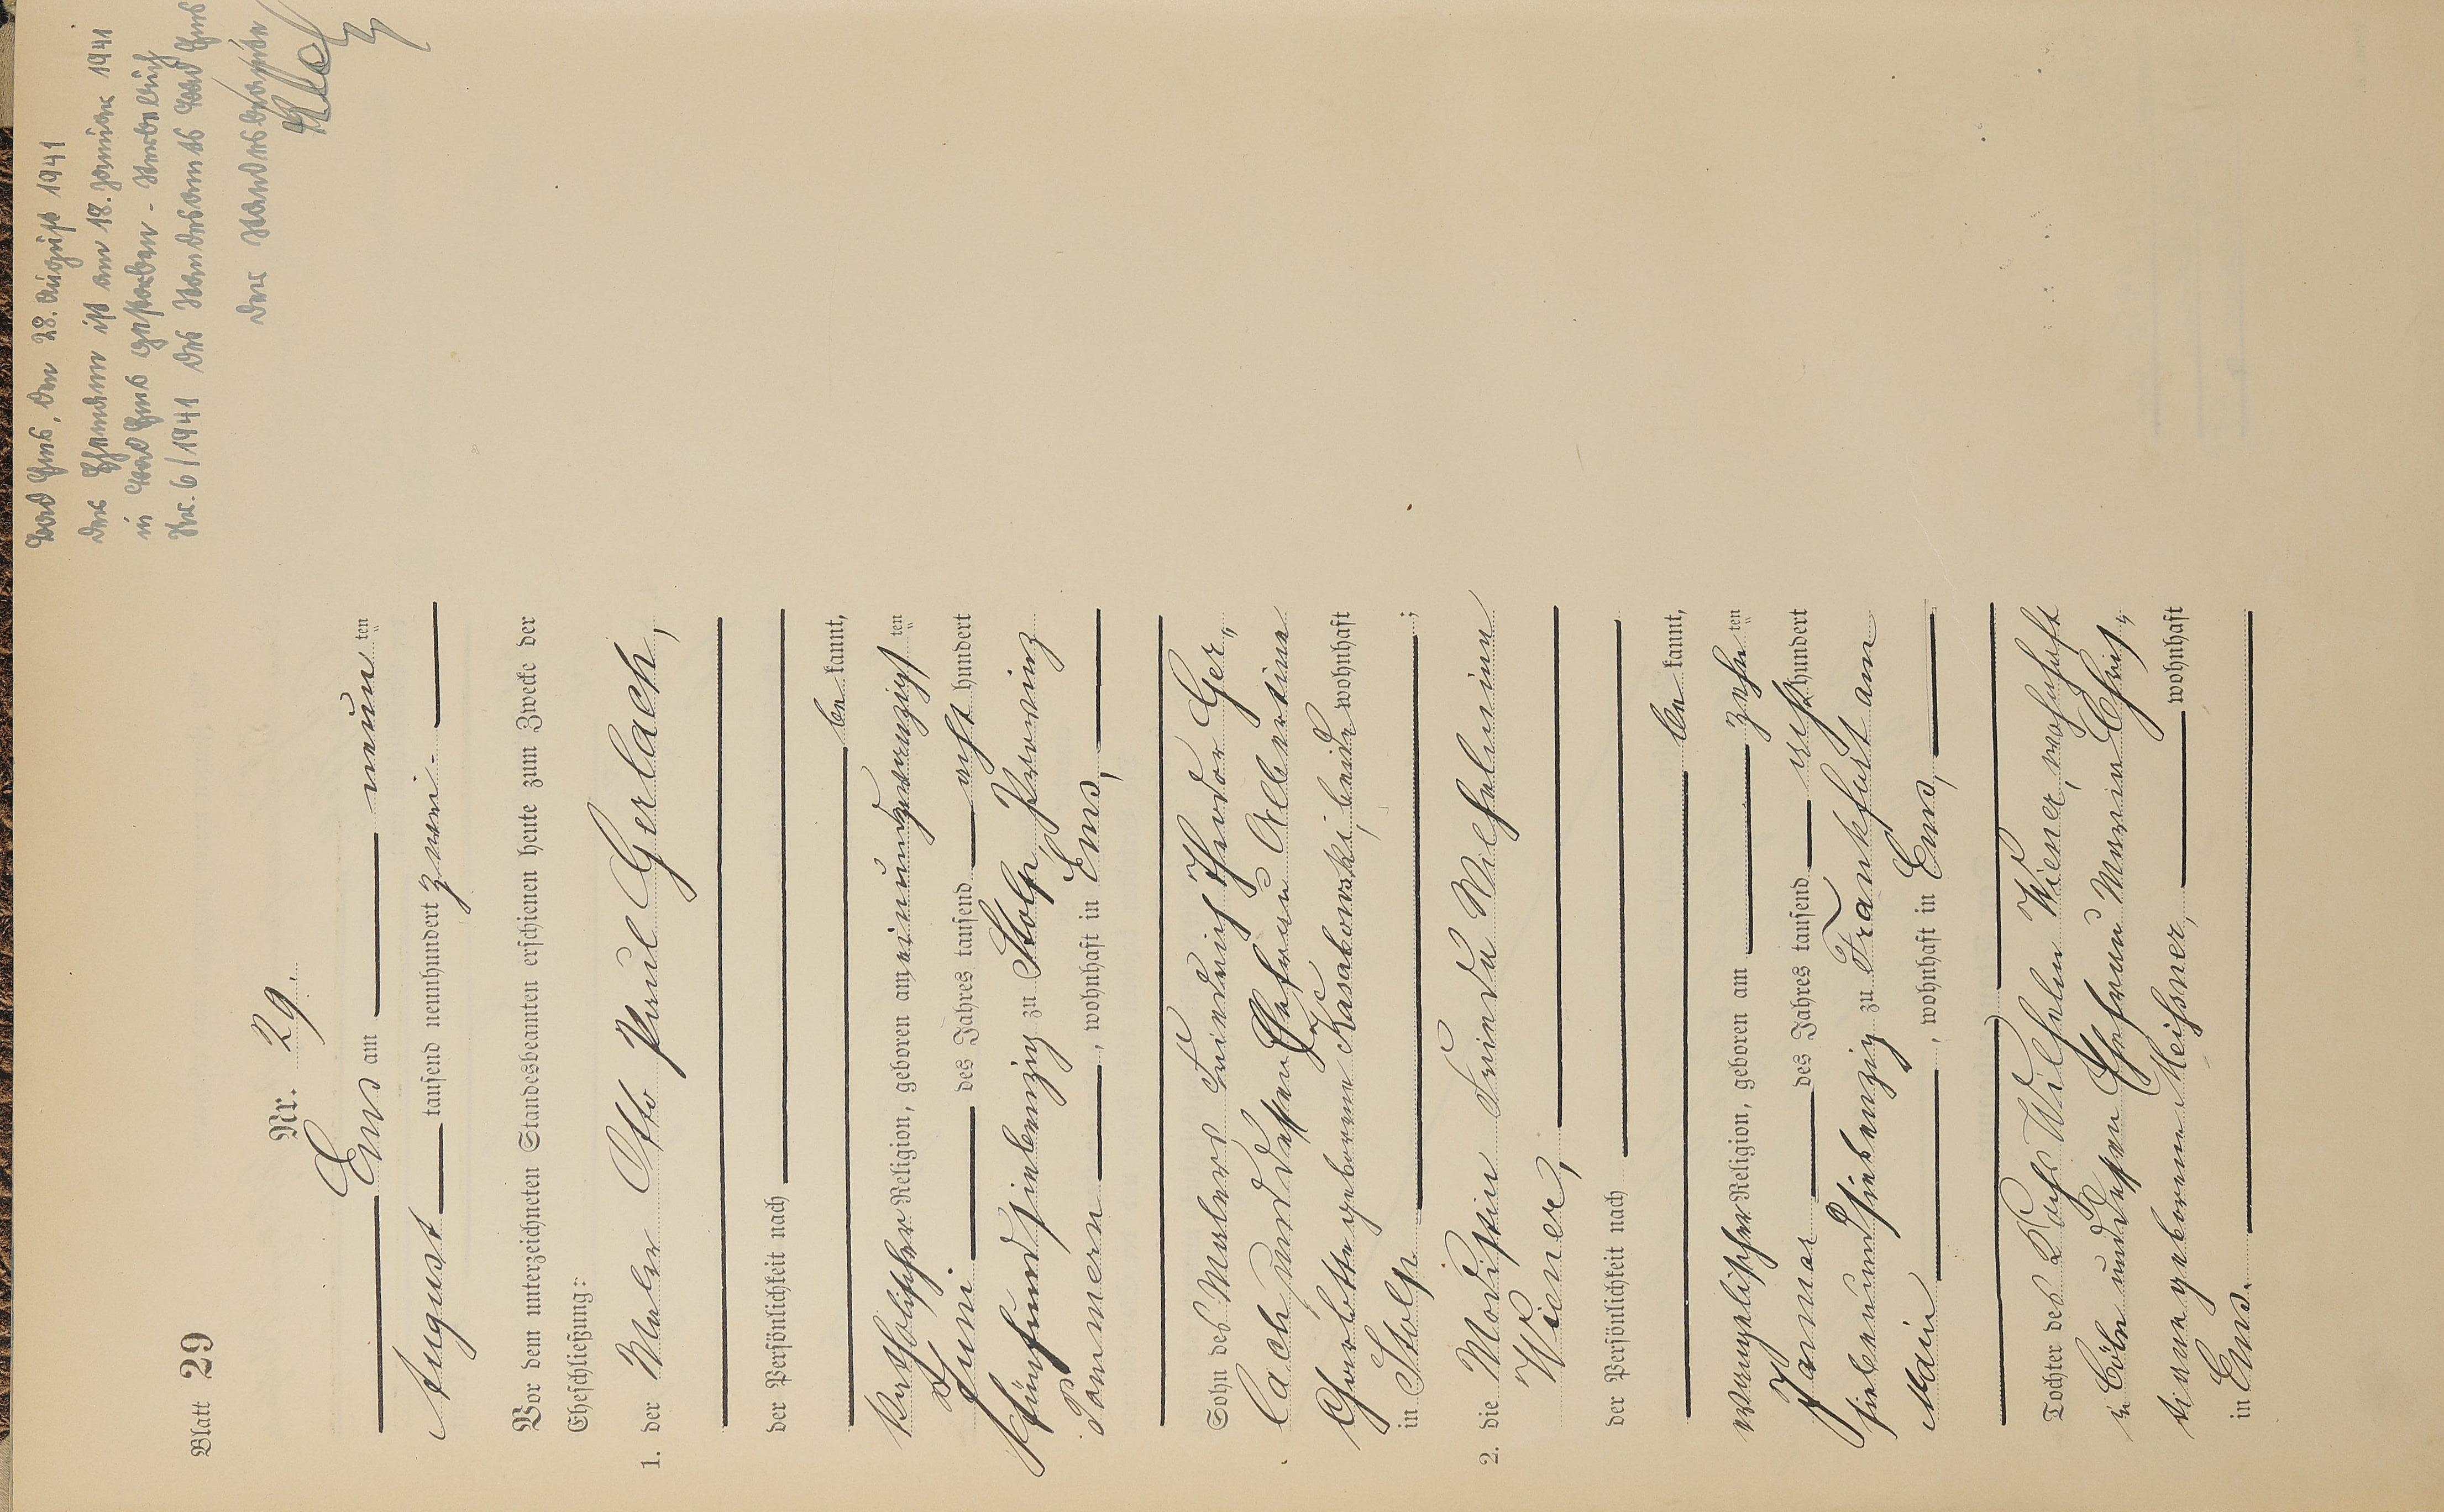 Blatt 29
Bad Ems, den 28. August 1941
Der Ehemann ist am 18. Januar 1941
in Bad Ems gestorben - Sterbebuch
Nr. 6/1941 des Standesamts Bad Ems
Der Standesbeamte
Nr. 29.
Ems am neun ten
August tausend neunhundert zwei.
Vor dem unterzeichneten Standesbeamten erschienen heute zum Zwecke der
Eheschließung:
1. der Maler Otto Paul Gerlach,
der Persönlichkeit nach
be kannt,
katholischer Religion, geboren am einundzwanzigst ten
Juni des Jahres tausend acht hundert
fünfundsiebenzig zu Stolp, Provinz
Pommern, wohnhaft in Ems,
Sohn des Malers Friedrich Theodor Ger„
lach und dessen Ehefrau Albertine
Charlotte geborene Kasabowski, beide wohnhaft
in Stolp;
2. die Modistin Frieda Wilhelmine
Wiener,
der Persönlichkeit nach
be kannt,
evangelischer Religion, geboren am zehn ten
Januar des Jahres tausend acht hundert
siebenundsiebenzig zu Frankfurt am
Main, wohnhaft in Ems,
Tochter des Wilhelm Wiener, wohnhaft
in Cöln und dessen Ehefrau Marie Chris„
tine geborene Meißner, wohnhaft
in Ems.